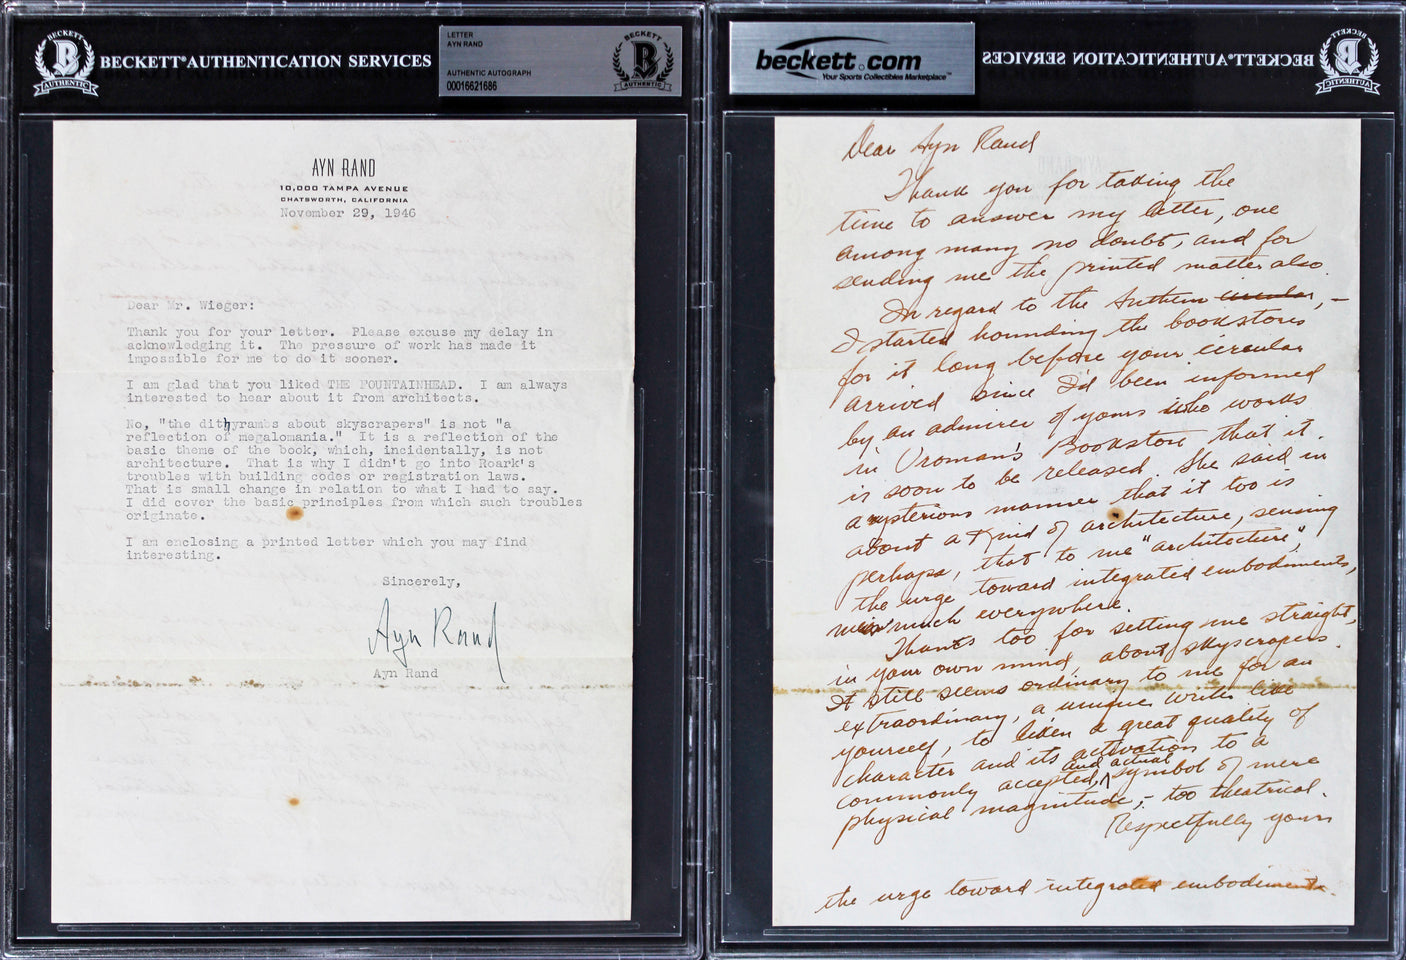 BECKETT
B
AUTHENTIC
BECKETT AUTHENTICATION SERVICES
LETTER
AYN RAND
AUTHENTIC AUTOGRAPH
00016621686
BECKETT
B
AUTHENTIC
AYN RAND
10,000 TAMPA AVENUE
CHATSWORTH, CALIFORNIA
November 29, 1946
Dear Mr. Wieger:
Thank you for your letter. Please excuse my delay in
acknowledging it. The pressure of work has made it
impossible for me to do it sooner.
I am glad that you liked THE FOUNTAINHEAD. I am always
interested to hear about it from architects.
No, "the dithyrambs about skyscrapers" is not "a
reflection of megalomania." It is a reflection of the
basic theme of the book, which, incidentally, is not
architecture. That is why I didn't go into Roark's
troubles with building codes or registration laws.
That is small change in relation to what I had to say.
I did cover the basic principles from which such troubles
originate.
I am enclosing a printed letter which you may find
interesting.
Sincerely,
Ayn Rand
Ayn Rand
beckett.com
Your Sports Collectibles Marketplace™
BECKETT AUTHENTICATION SERVICES
BECKETT
B
AUTHENTIC
Dear Ayn Rand
Thank you for taking the
time to answer my letter, one
among many no doubt, and for
sending me the printed matter also.
In regard to the Anthem circular, –
I started hounding the bookstores
for it long before your circular
arrived since I'd been informed
by an admirer of yours who works
in Vroman's Bookstore that it
is soon to be released. She said in
a mysterious manner that it too is
about a kind of architecture, sensing
perhaps, that to me "architecture",
the urge toward integrated embodiments,
much everywhere.
Thanks too for setting me straight,
in your own mind, about skyscrapers
It still seems ordinary to me for an
extraordinary, a unique writer like
yourself, to liken a great quality of
character and its activation to a
commonly accepted, and actual symbol of mere
physical magnitude, – too theatrical.
Respectfully yours
the urge toward integrated embodiments.